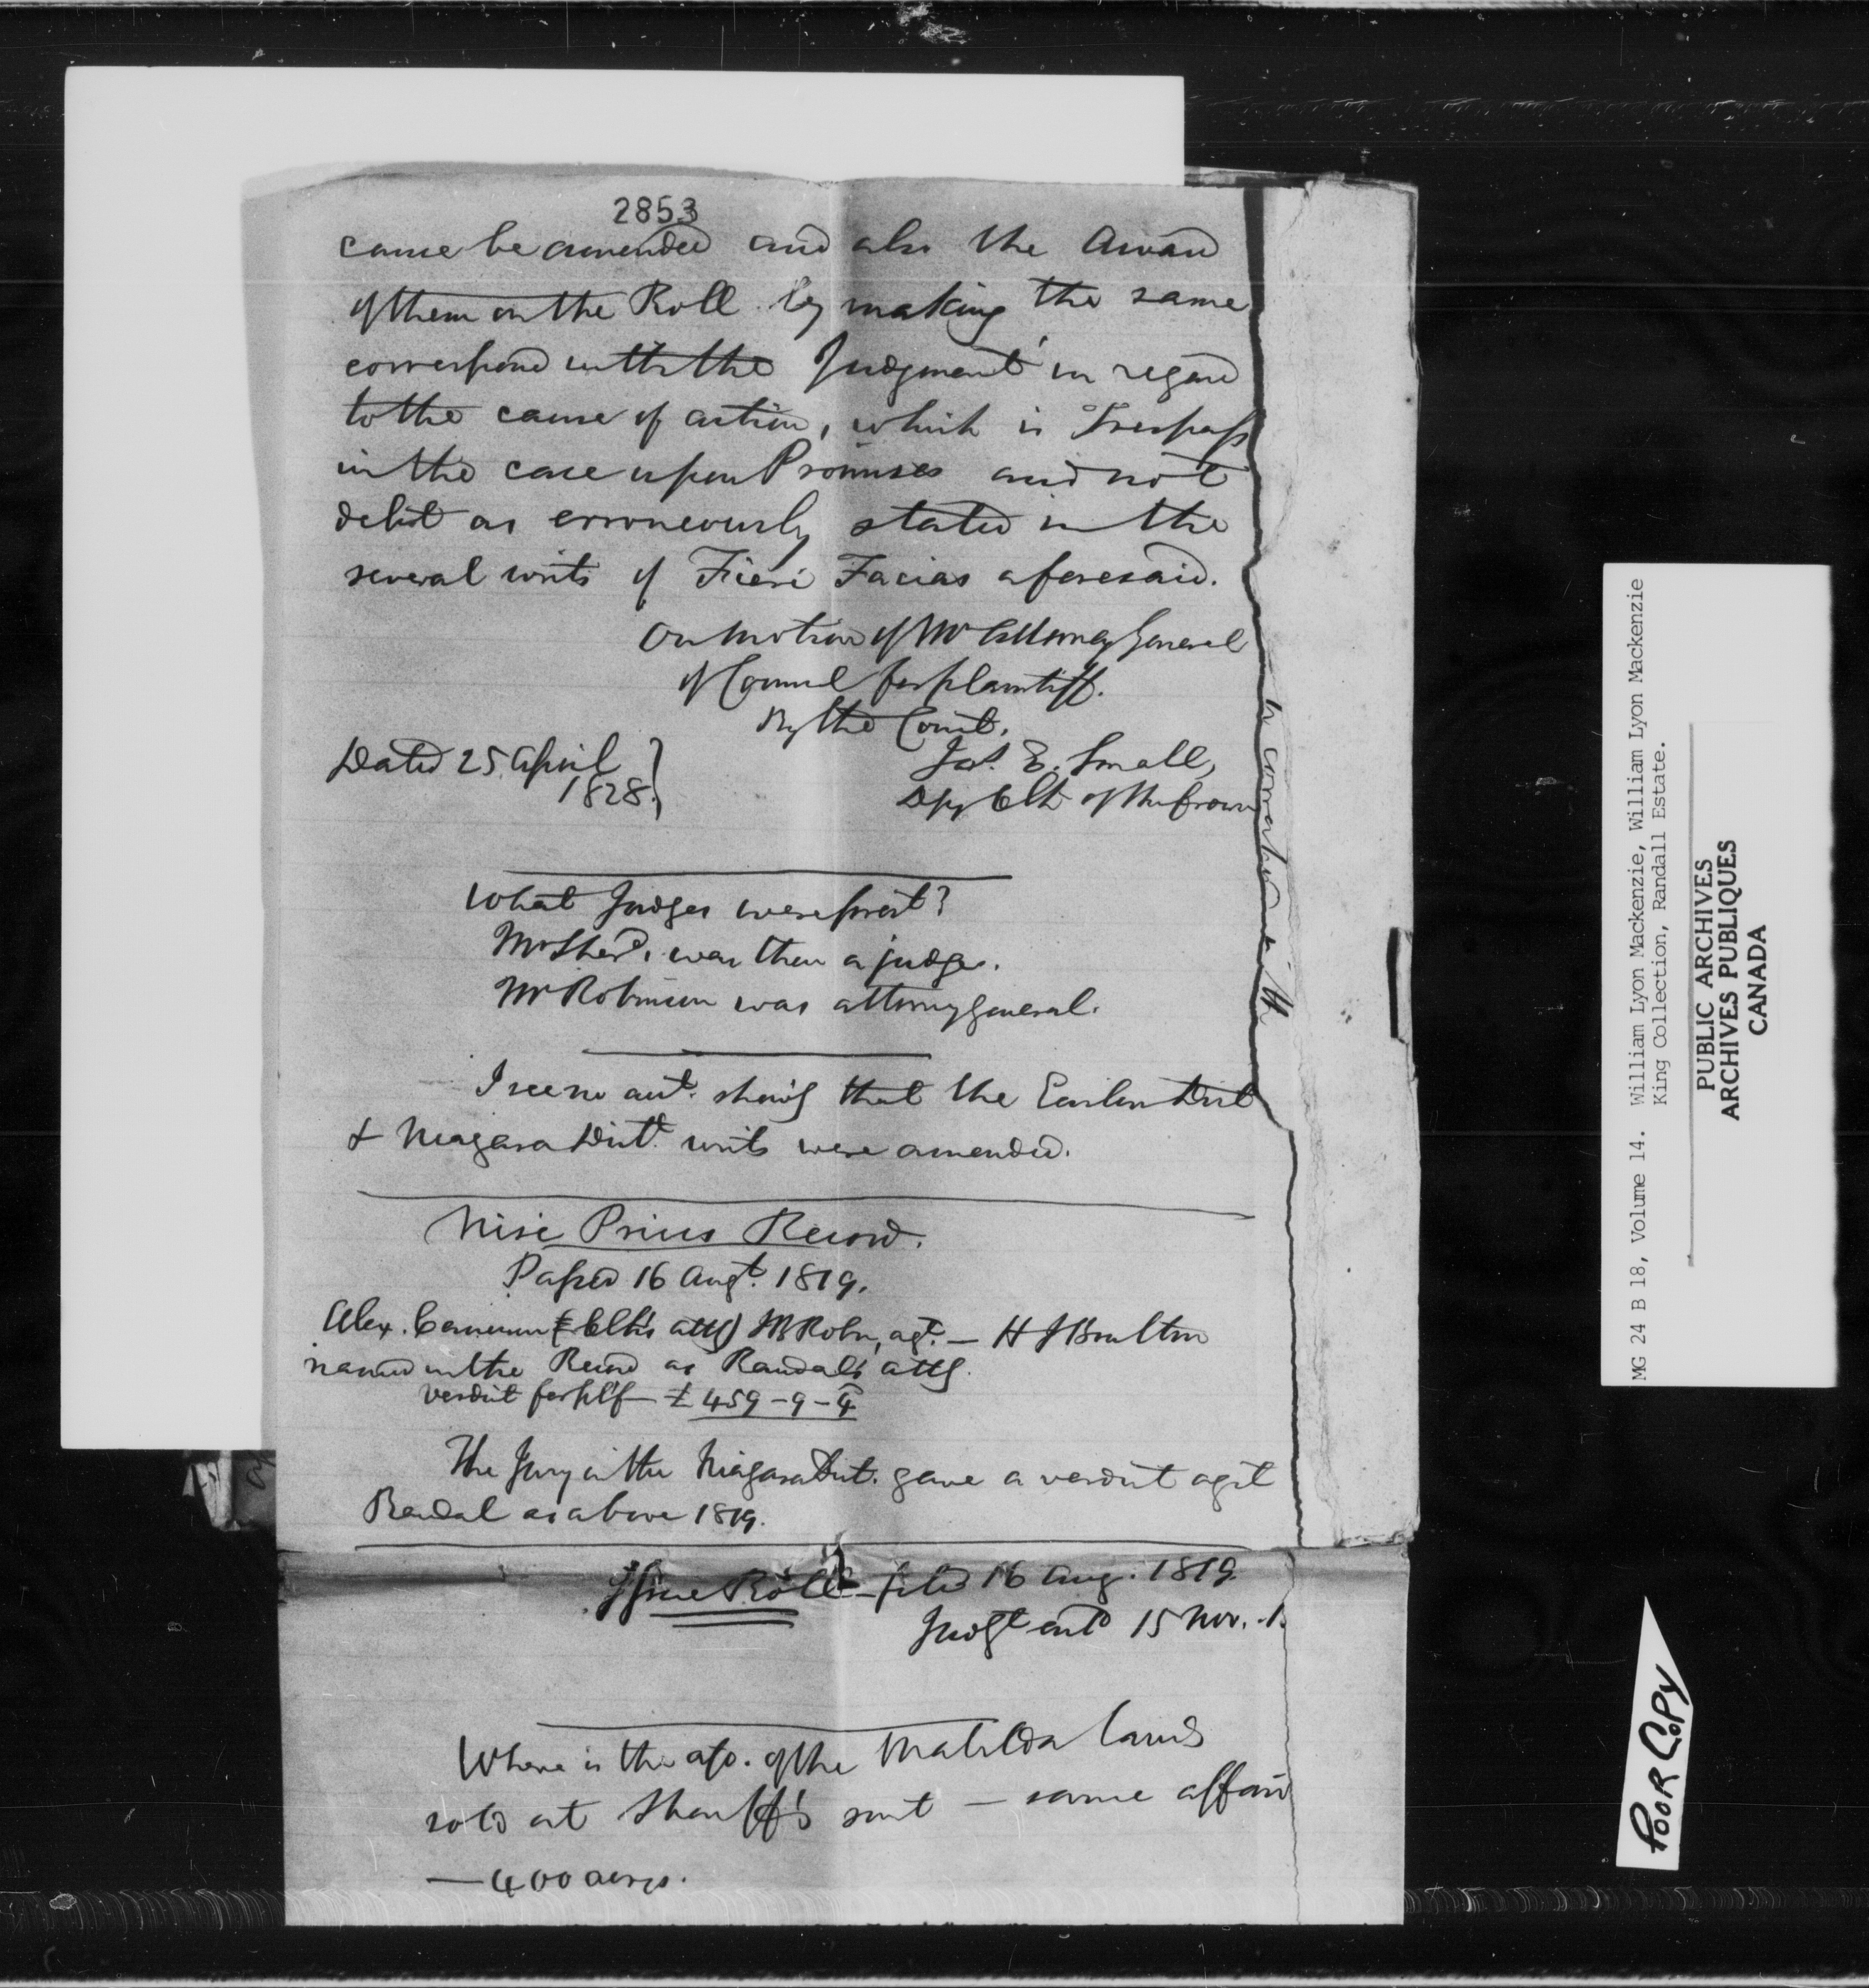 2853
cause be amended and also the Award
of them on the Roll by making the same
correspond with the Judgment in regard
to the cause of action, which is Trespass
in the case upon Promises and not
debt as erroneously stated in the
several writs of Fieri Facias aforesaid.
On motion of Mr Attorney General
of Counsel for plaintiff.
By the Court.
Dated 25 April
1828.
Jas. E. Small,
Dpy Clk of the Crown
What Judges were prest?
Mr Sherd. was then a judge.
Mr Robinson was attorney general.
I see no aut. showg that the Eastern Dist
& Niagara Distt. writs were amended.
Nisi Prius Record.
Passed 16 Augt. 1819.
Alex. Cameron (Clk's atty) JBRobn, agt. — H J Boulton
named in the Record as Randal's atty.
verdict for plf — £459-9-4
The Jury in the Niagara Dist. gave a verdict agst
Randal as above 1819.
Issue Roll — filed 16 Aug. 1819
Judgt entd 15 Nov.
Where is the afs. of the Matilda lands
sold at Sheriff's suit — same affair
— 400 acres.
MG 24 B 18, Volume 14. William Lyon Mackenzie, William Lyon Mackenzie
King Collection, Randall Estate.
PUBLIC ARCHIVES
ARCHIVES PUBLIQUES
CANADA
POOR COPY